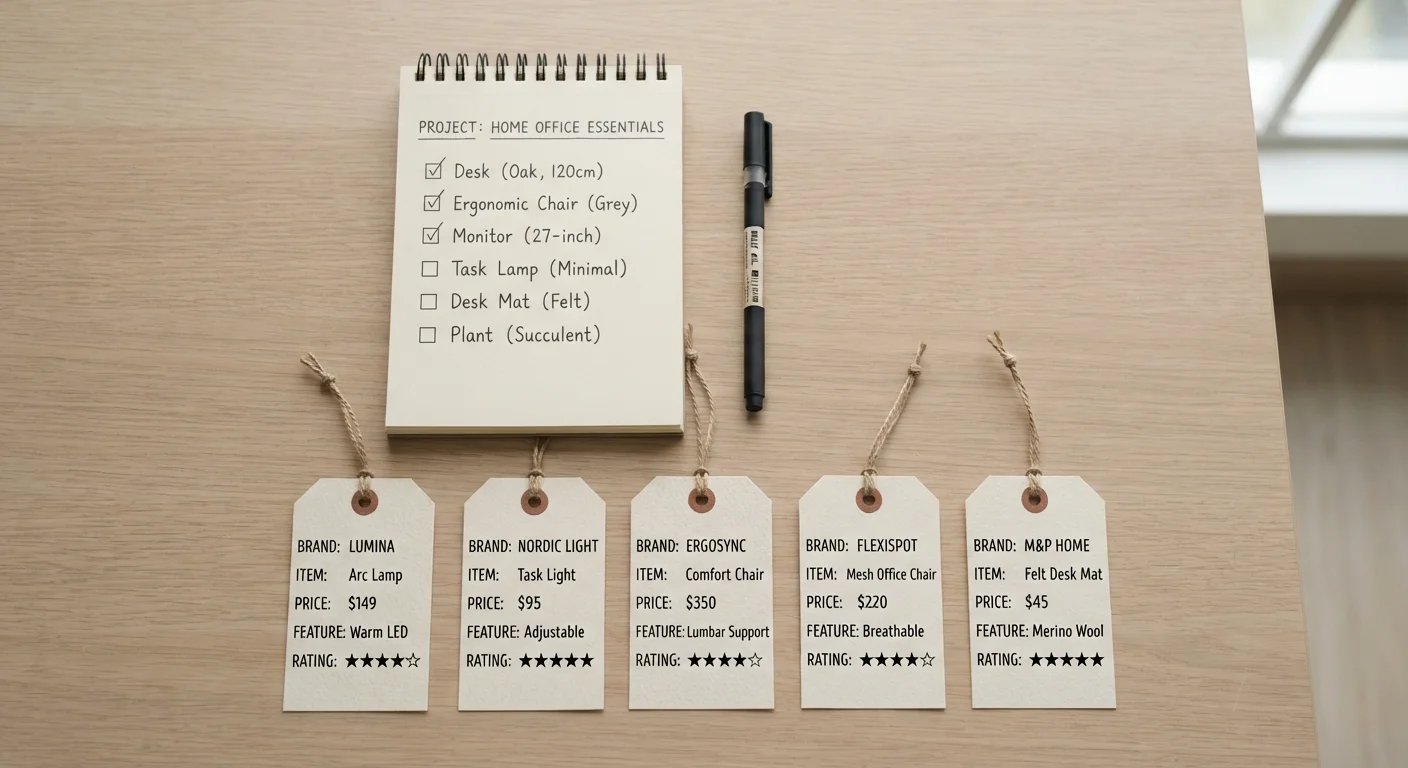 PROJECT: HOME OFFICE ESSENTIALS
Desk (Oak, 120cm)
Ergonomic Chair (Grey)
Monitor (27-inch)
Task Lamp (Minimal)
Desk Mat (Felt)
Plant (Succulent)
BRAND: LUMINA
ITEM: Arc Lamp
PRICE: $149
FEATURE: Warm LED
RATING: ★★★★☆
BRAND: NORDIC LIGHT
ITEM: Task Light
PRICE: $95
FEATURE: Adjustable
RATING: ★★★★★
BRAND: ERGOSYNC
ITEM: Comfort Chair
PRICE: $350
FEATURE: Lumbar Support
RATING: ★★★★☆
BRAND: FLEXISPOT
ITEM: Mesh Office Chair
PRICE: $220
FEATURE: Breathable
RATING: ★★★★☆
BRAND: M&P HOME
ITEM: Felt Desk Mat
PRICE: $45
FEATURE: Merino Wool
RATING: ★★★★★